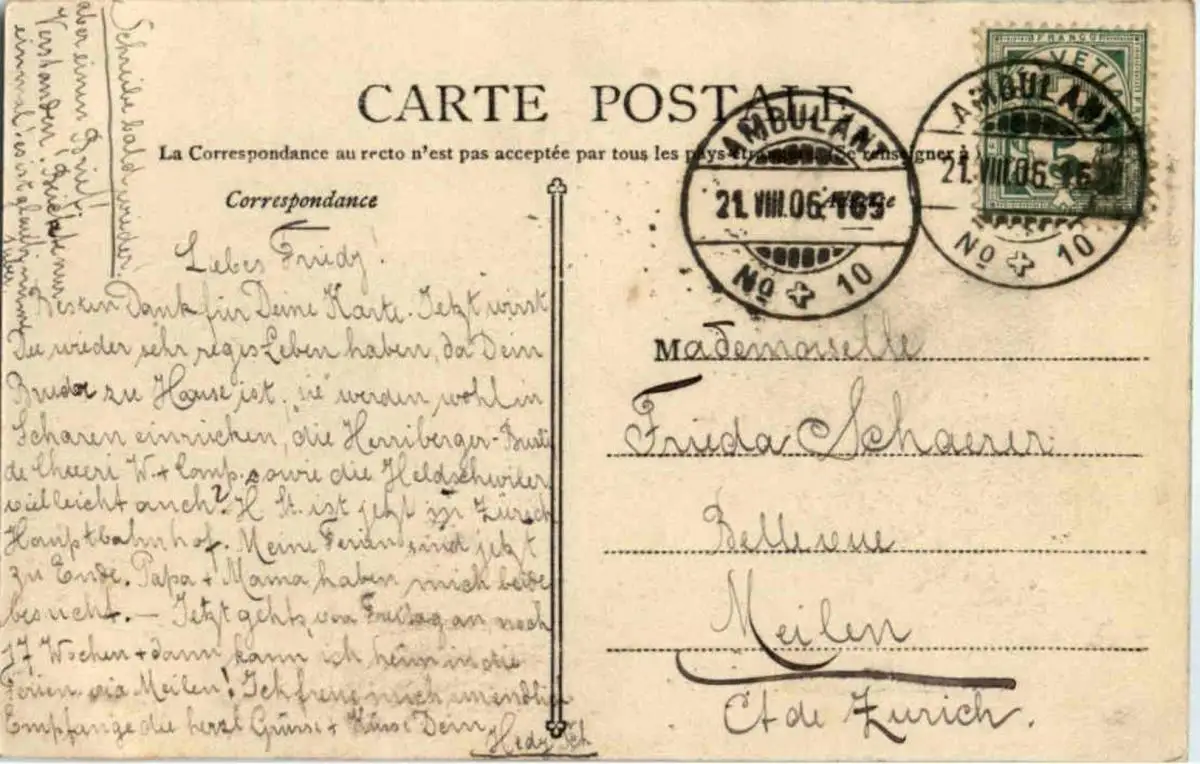 CARTE POSTALE
La Correspondance au recto n'est pas acceptée par tous les pays
Correspondance
Liebes Friedy!
Besten Dank für Deine Karte. Jetzt wirst
Du wieder sehr reges Leben haben, da Dein
Bruder zu Hause ist, sie werden wohl in
Scharen einrücken, die Herriberger-
W. + Comp. sowie die Heldschwiler
vielleicht auch? H St. ist jetzt in Zürich
Hauptbahnhof. Meine Ferien sind jetzt
zu Ende. Papa + Mama haben mich beide
besucht. — Jetzt gehts von Freitag an, noch
17 Wochen + dann kann ich heim in die
Ferien via Meilen! Ich freue mich unendlich
Empfange die herzl Grüsse + Küsse Dein
Hedy Sch
Schreibe bald wieder,
aber einen Brief!
Verstanden.
einmal
FRANCO
AMBULANT
21.VIII.06
No 10
AMBULANT
21.VIII.06.165
No 10
Mademoiselle
Frieda Schaerer
Bellevue
Meilen
Ct de Zürich.